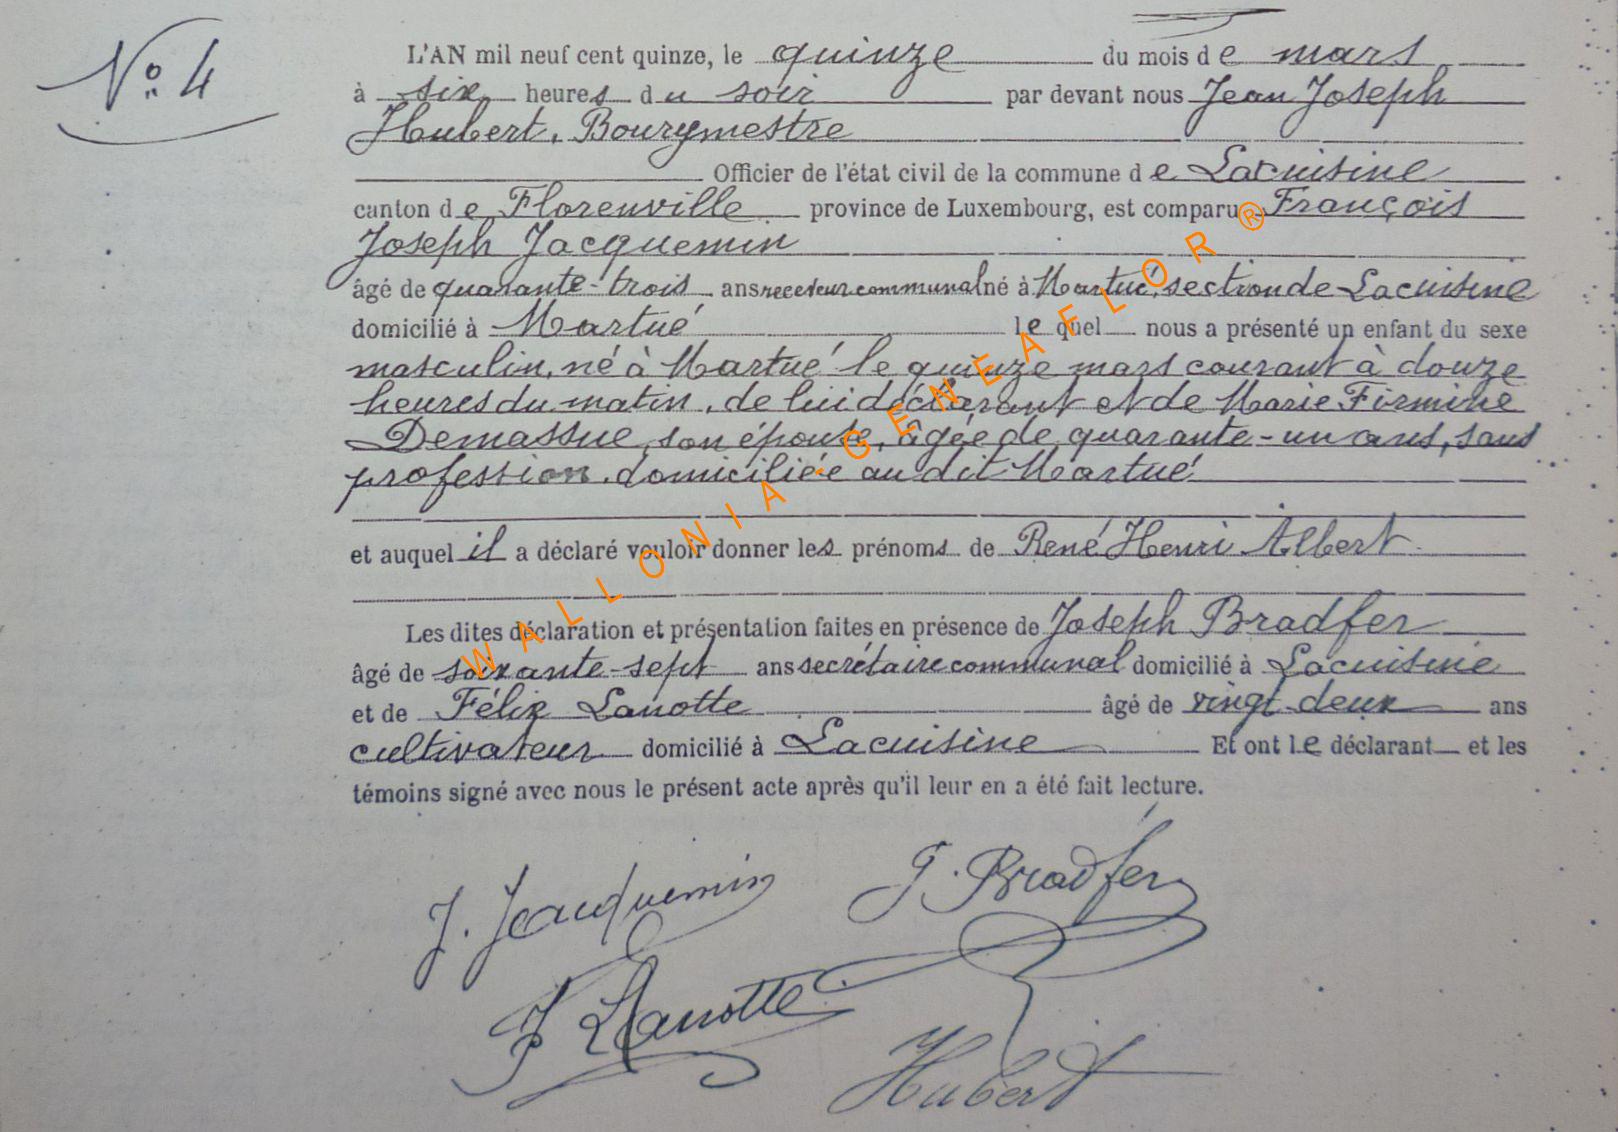 N° 4
L'AN mil neuf cent quinze, le quinze du mois de mars
à six heures du soir par devant nous Jean Joseph
Hubert, Bourgmestre
Officier de l'état civil de la commune de Lacuisine
canton de Florenville province de Luxembourg, est comparu François
Joseph Jacquemin
âgé de quarante-trois ans receveur communal né à Martué, section de Lacuisine
domicilié à Martué lequel nous a présenté un enfant du sexe
masculin, né à Martué le quinze mars courant à douze
heures du matin, de lui déclarant et de Marie Firmine
Demassue, son épouse, âgée de quarante-un ans, sans
profession, domiciliée au dit Martué
et auquel il a déclaré vouloir donner les prénoms de René Henri Albert
Les dites déclaration et présentation faites en présence de Joseph Bradfer
âgé de soixante-sept ans secrétaire communal domicilié à Lacuisine
et de Félix Lanotte âgé de vingt-deux ans
cultivateur domicilié à Lacuisine Et ont le déclarant et les
témoins signé avec nous le présent acte après qu'il leur en a été fait lecture.
J. Jacquemin J. Bradfer
F Lanotte
Hubert
WALLONIA-GENEAFLOR®